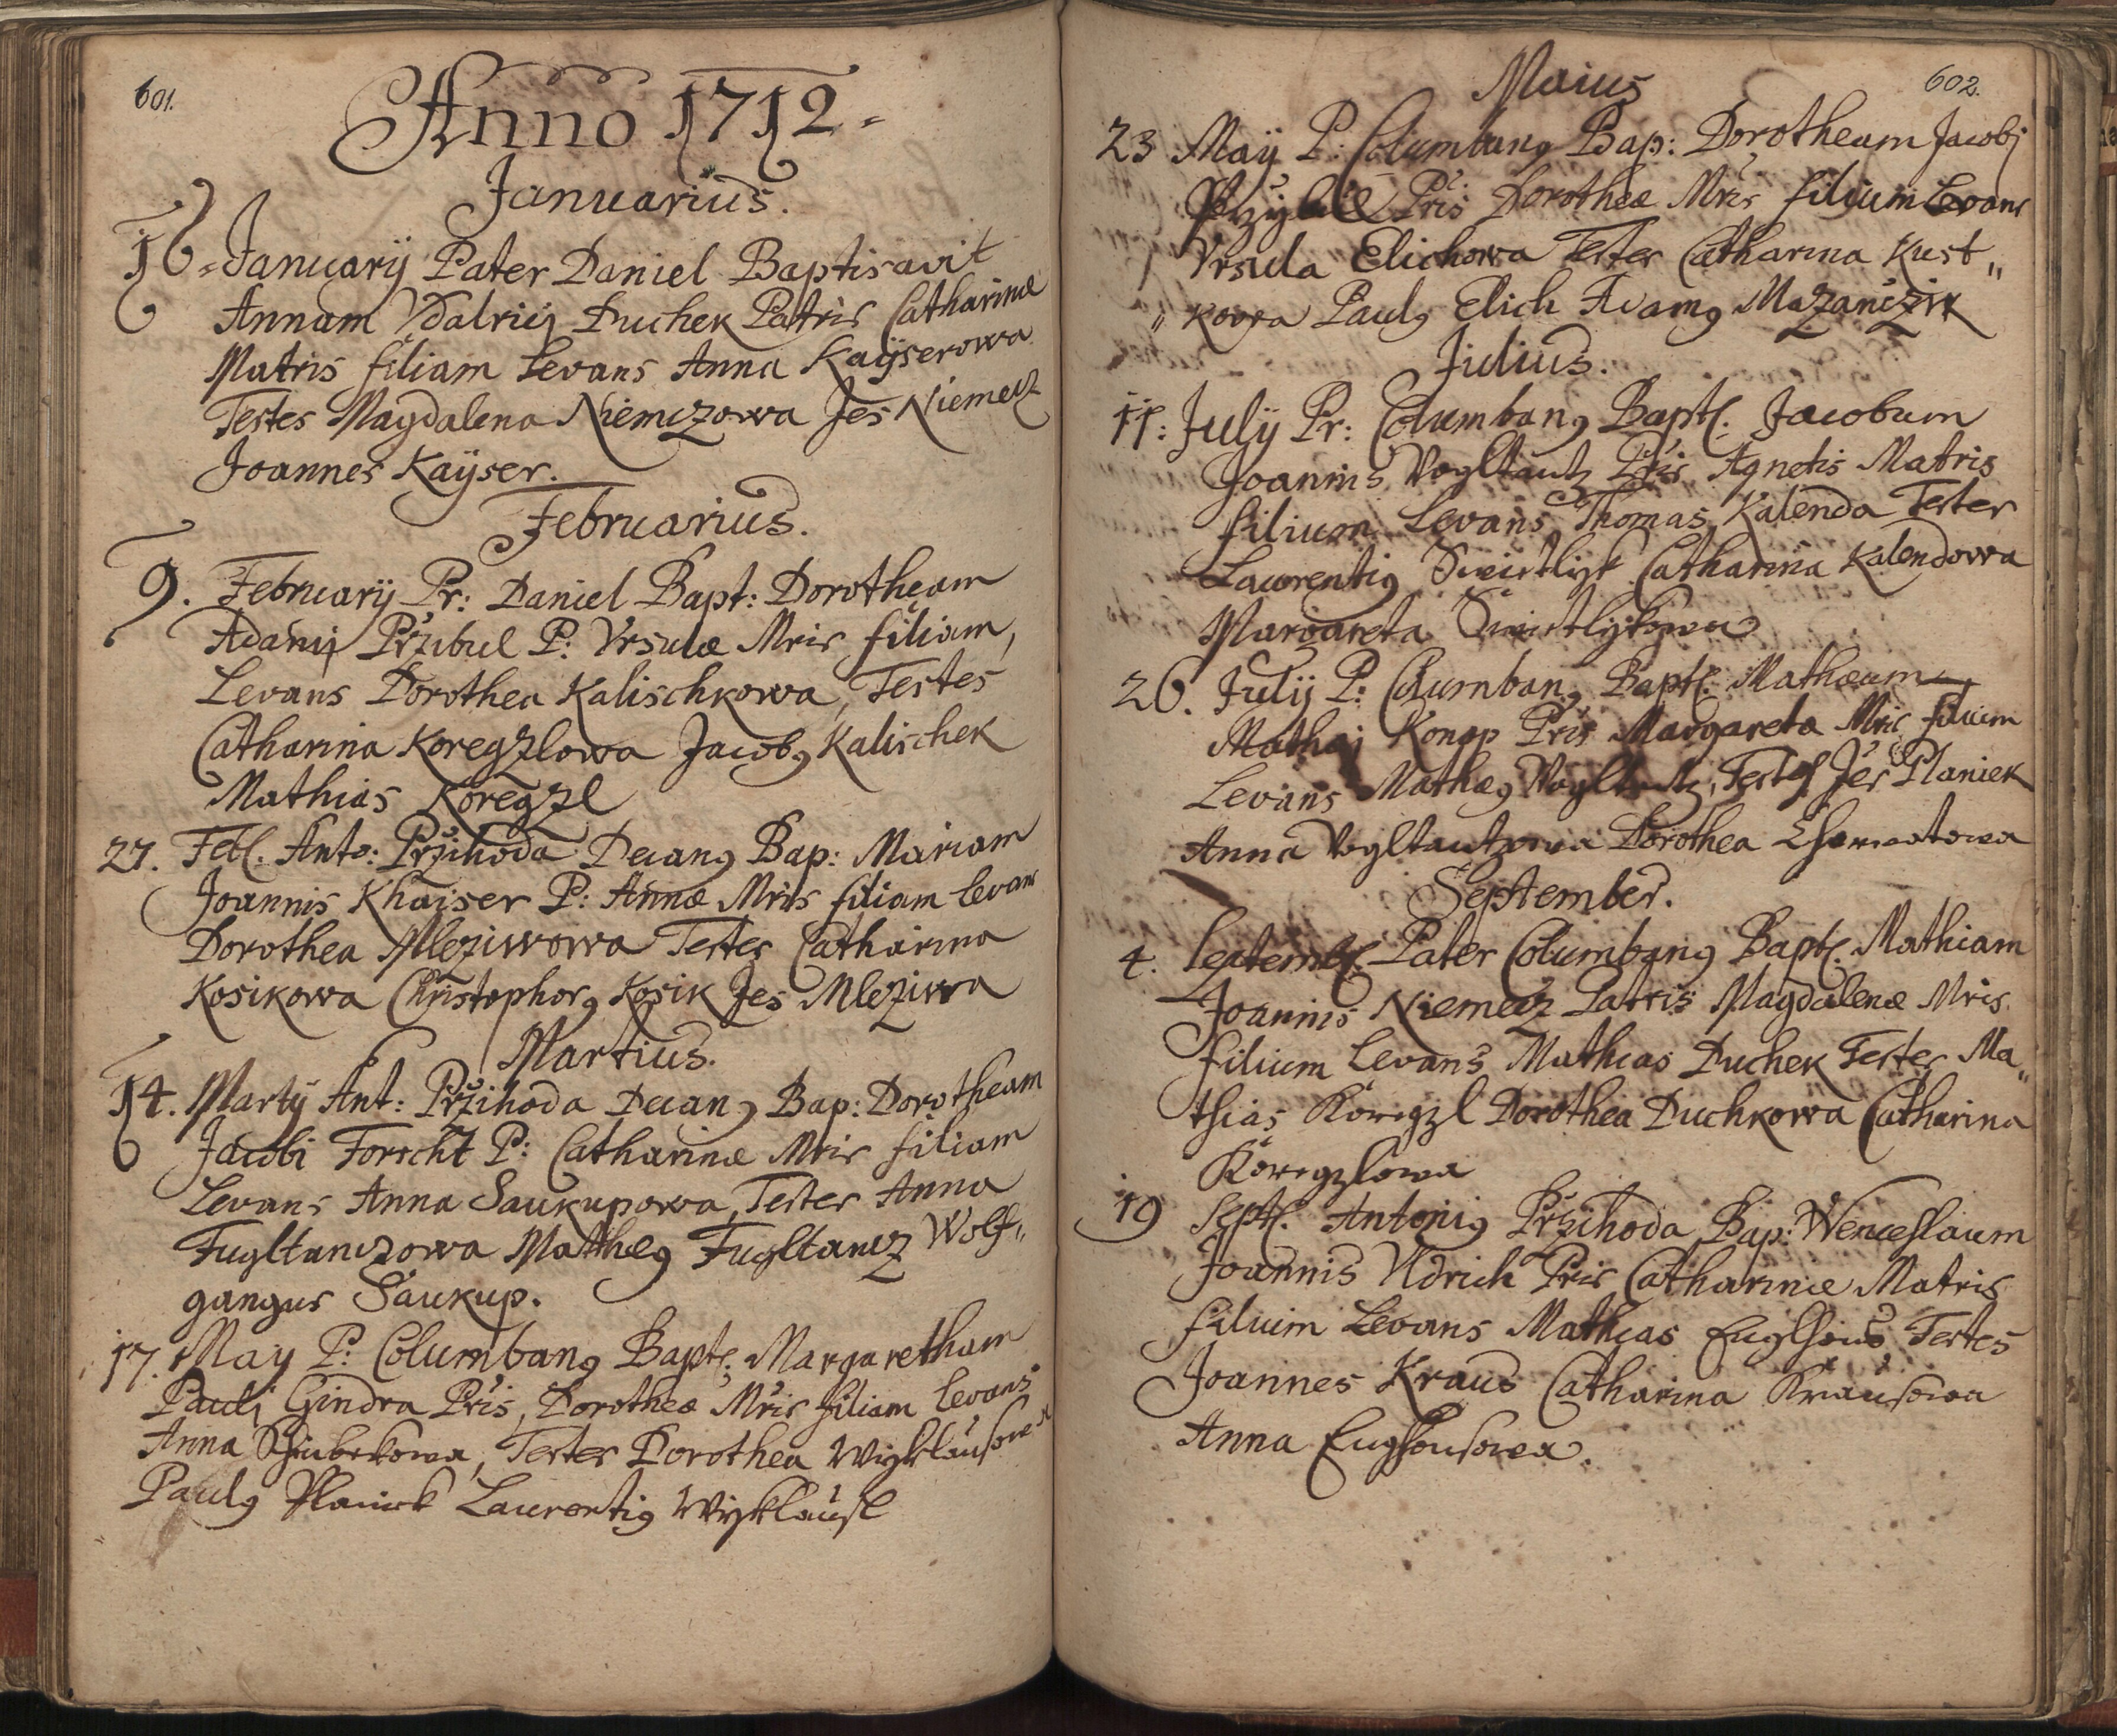 601.
Anno 1712
Januarius.
16 January Pater Daniel Baptisavit
Annam Vdalricj Duchek Patris Catharinæ
Matris filiam Levans Anna Kaÿserowa
Testes Magdalena Niemczowa Jes Niemecz
Joannes Kaÿser.
Februarius.
9. Februarÿ Pr: Daniel Bapt: Dorotheam
Adamj Przibul P: Vrsulæ Mris filiam,
Levans Dorothea Kalischkowa, Testes
Catharina Koregzlowa Jacobq Kalischek
Mathias Koregzl
27. Feb. Anto: Przihoda Decanq Bap: Mariam
Joannis Khaiser P: Annæ Mris filiam levans
Dorothea Mleziwowa Testes Catharina
Kosikowa Christophorq Kosik Jes Mleziwa
Martius.
14. Martÿ Ant: Przihoda Decanq Bap: Dorotheam
Jacobi Forscht P: Catharinæ Mris filiam
Levans Anna Saukupowa, Testes Anna
Fugltanczowa Matheq Fugltancz Wolf„
gangus Saukup.
17. May P: Columbanq Bapt: Margaretham
Paulj Gindra Pris, Dorotheæ Mris filiam levans
Anna, Testes Dorothea
Paulq Planiek Laurentiq Wisklausl
602.
Maius
23 Maÿ P: Columbanq Bap: Dorotheam Jacobj
Pris Dorotheæ Mris filium Levans
Vrsula Elichowa Testes Catharina Kust„
„kowa Paulq Elich Adamq Mazanczik
Julius.
11. Julÿ Pr: Columbanq Bapt. Jacobum
Joannis Vogltantz Pris Agnetis Matris
filium Levans Thomas Kalenda Testes
Laurentiq Swietlyk Catharina Kalendowa
Margareta Swietlykowa
26. Julÿ P: Columbanq Bapt. Mathæum
Mathæj Konop Pris Margareta Mris filium
Levans Mathæq Vogltantz, Testes Jes Planiek
Anna Vogltantzowa Dorothea
September.
4. Septemb. Pater Columbanq Bapt. Mathiam
Joannis Niemecz Patris Magdalenæ Mris
filium Levans Mathias Duchek Testes Ma„
thias Koregzl Dorothea Duchkowa Catharina
Koregzlowa
19 Sept. Antoniq Przihoda Bap: Wenceslaum
Joannis Uldrich Pris Catharinæ Matris
filium Levans Mathias Englhous Testes
Joannes Kraus Catharina Krausowa
Anna Englhousowa.